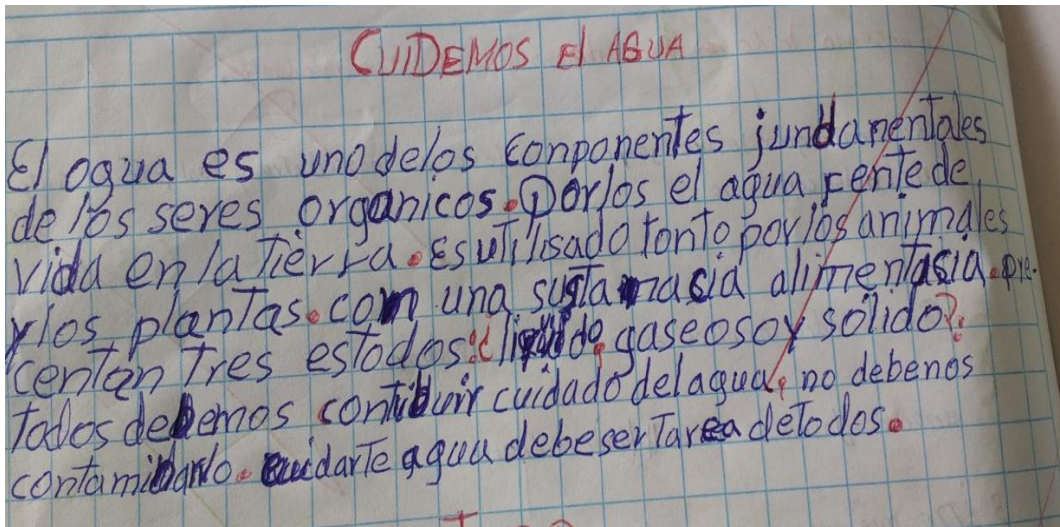 CUIDEMOS El AGUA
El ogua es uno delos conponentes jundamentales
de los seres organicos. Porlos el agua fente de
vida en la Tierra. es utilisado tonto por los animales
ylos plantas. com una sustamasia alimentasia. pre-
centan Tres estodos: ¿liquido, gaseoso y sólido?.
Todos debemos contibuir cuidado del agua, no debenos
contaminarlo. cuidarte agua debe ser Tarea de Todos.